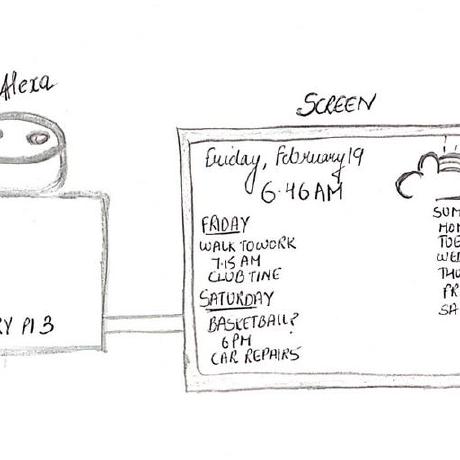 Alexa
SCREEN
Friday, February 19
6.46 AM
FRIDAY
WALK TO WORK
7.15 AM
CLUB TINE
SATURDAY
BASKETBALL?
6 PM
CAR REPAIRS
SUM
MON
TUE
WED
THU
FR
SA
RY PI 3